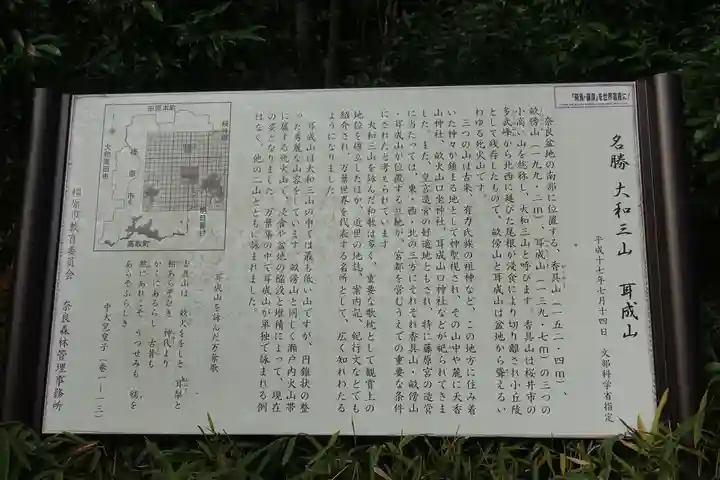 「飛鳥・藤原」を世界遺産に!
名勝 大和三山 耳成山
平成十七年七月十四日 文部科学省指定
奈良盆地の南部に位置する、香具山(一五二・四m)、
畝傍山(一九九・二m)、耳成山(一三九・七m)の三つの
小高い山を総称し、大和三山と呼びます。香具山は桜井市の
多武峰から北西に延びた尾根が浸食により切り離され小丘陵
として残存したもので、畝傍山と耳成山は盆地から聳えるい
わゆる死火山です。
三つの山は古来、有力氏族の祖神など、この地方に住み着
いた神々が鎮まる地として神聖視され、その山中や麓に天香
山神社、畝火山口坐神社、耳成山口神社などが祀られてきま
した。また、皇宮造営の好適地ともされ、特に藤原宮の造営
に当たっては、東・西・北の三方にそれぞれ香具山・畝傍山
・耳成山が位置する立地が、宮都を営むうえでの重要な条件
にされたと考えられています。
大和三山を詠んだ和歌は多く、重要な歌枕として観賞上の
地位を確立したほか、近世の地誌、案内記、紀行文などでも
紹介され、万葉世界を代表する名所として、広く知れわたる
ようになりました。
耳成山は大和三山の中では最も低い山ですが、円錐状の整
った秀麗な山容をしています。畝傍山と同じく瀬戸内火山帯
に属する死火山で、浸食や盆地の陥没と堆積によって、現在
の姿となりました。万葉集の中で耳成山が単独で詠まれる例
はなく、他の二山とともに詠まれました。
耳成山を詠んだ万葉歌
香具山は 畝火ををしと 耳梨と
相あらそひき 神代より
かくにあるらし 古昔も
然にあれこそ うつせみも 嬬を
あらそふらしき
中大兄皇子(巻一-一三)
田原本町
桜井市
橿原市
大和高田市
明日香村
高取町
橿原市教育委員会
奈良森林管理事務所